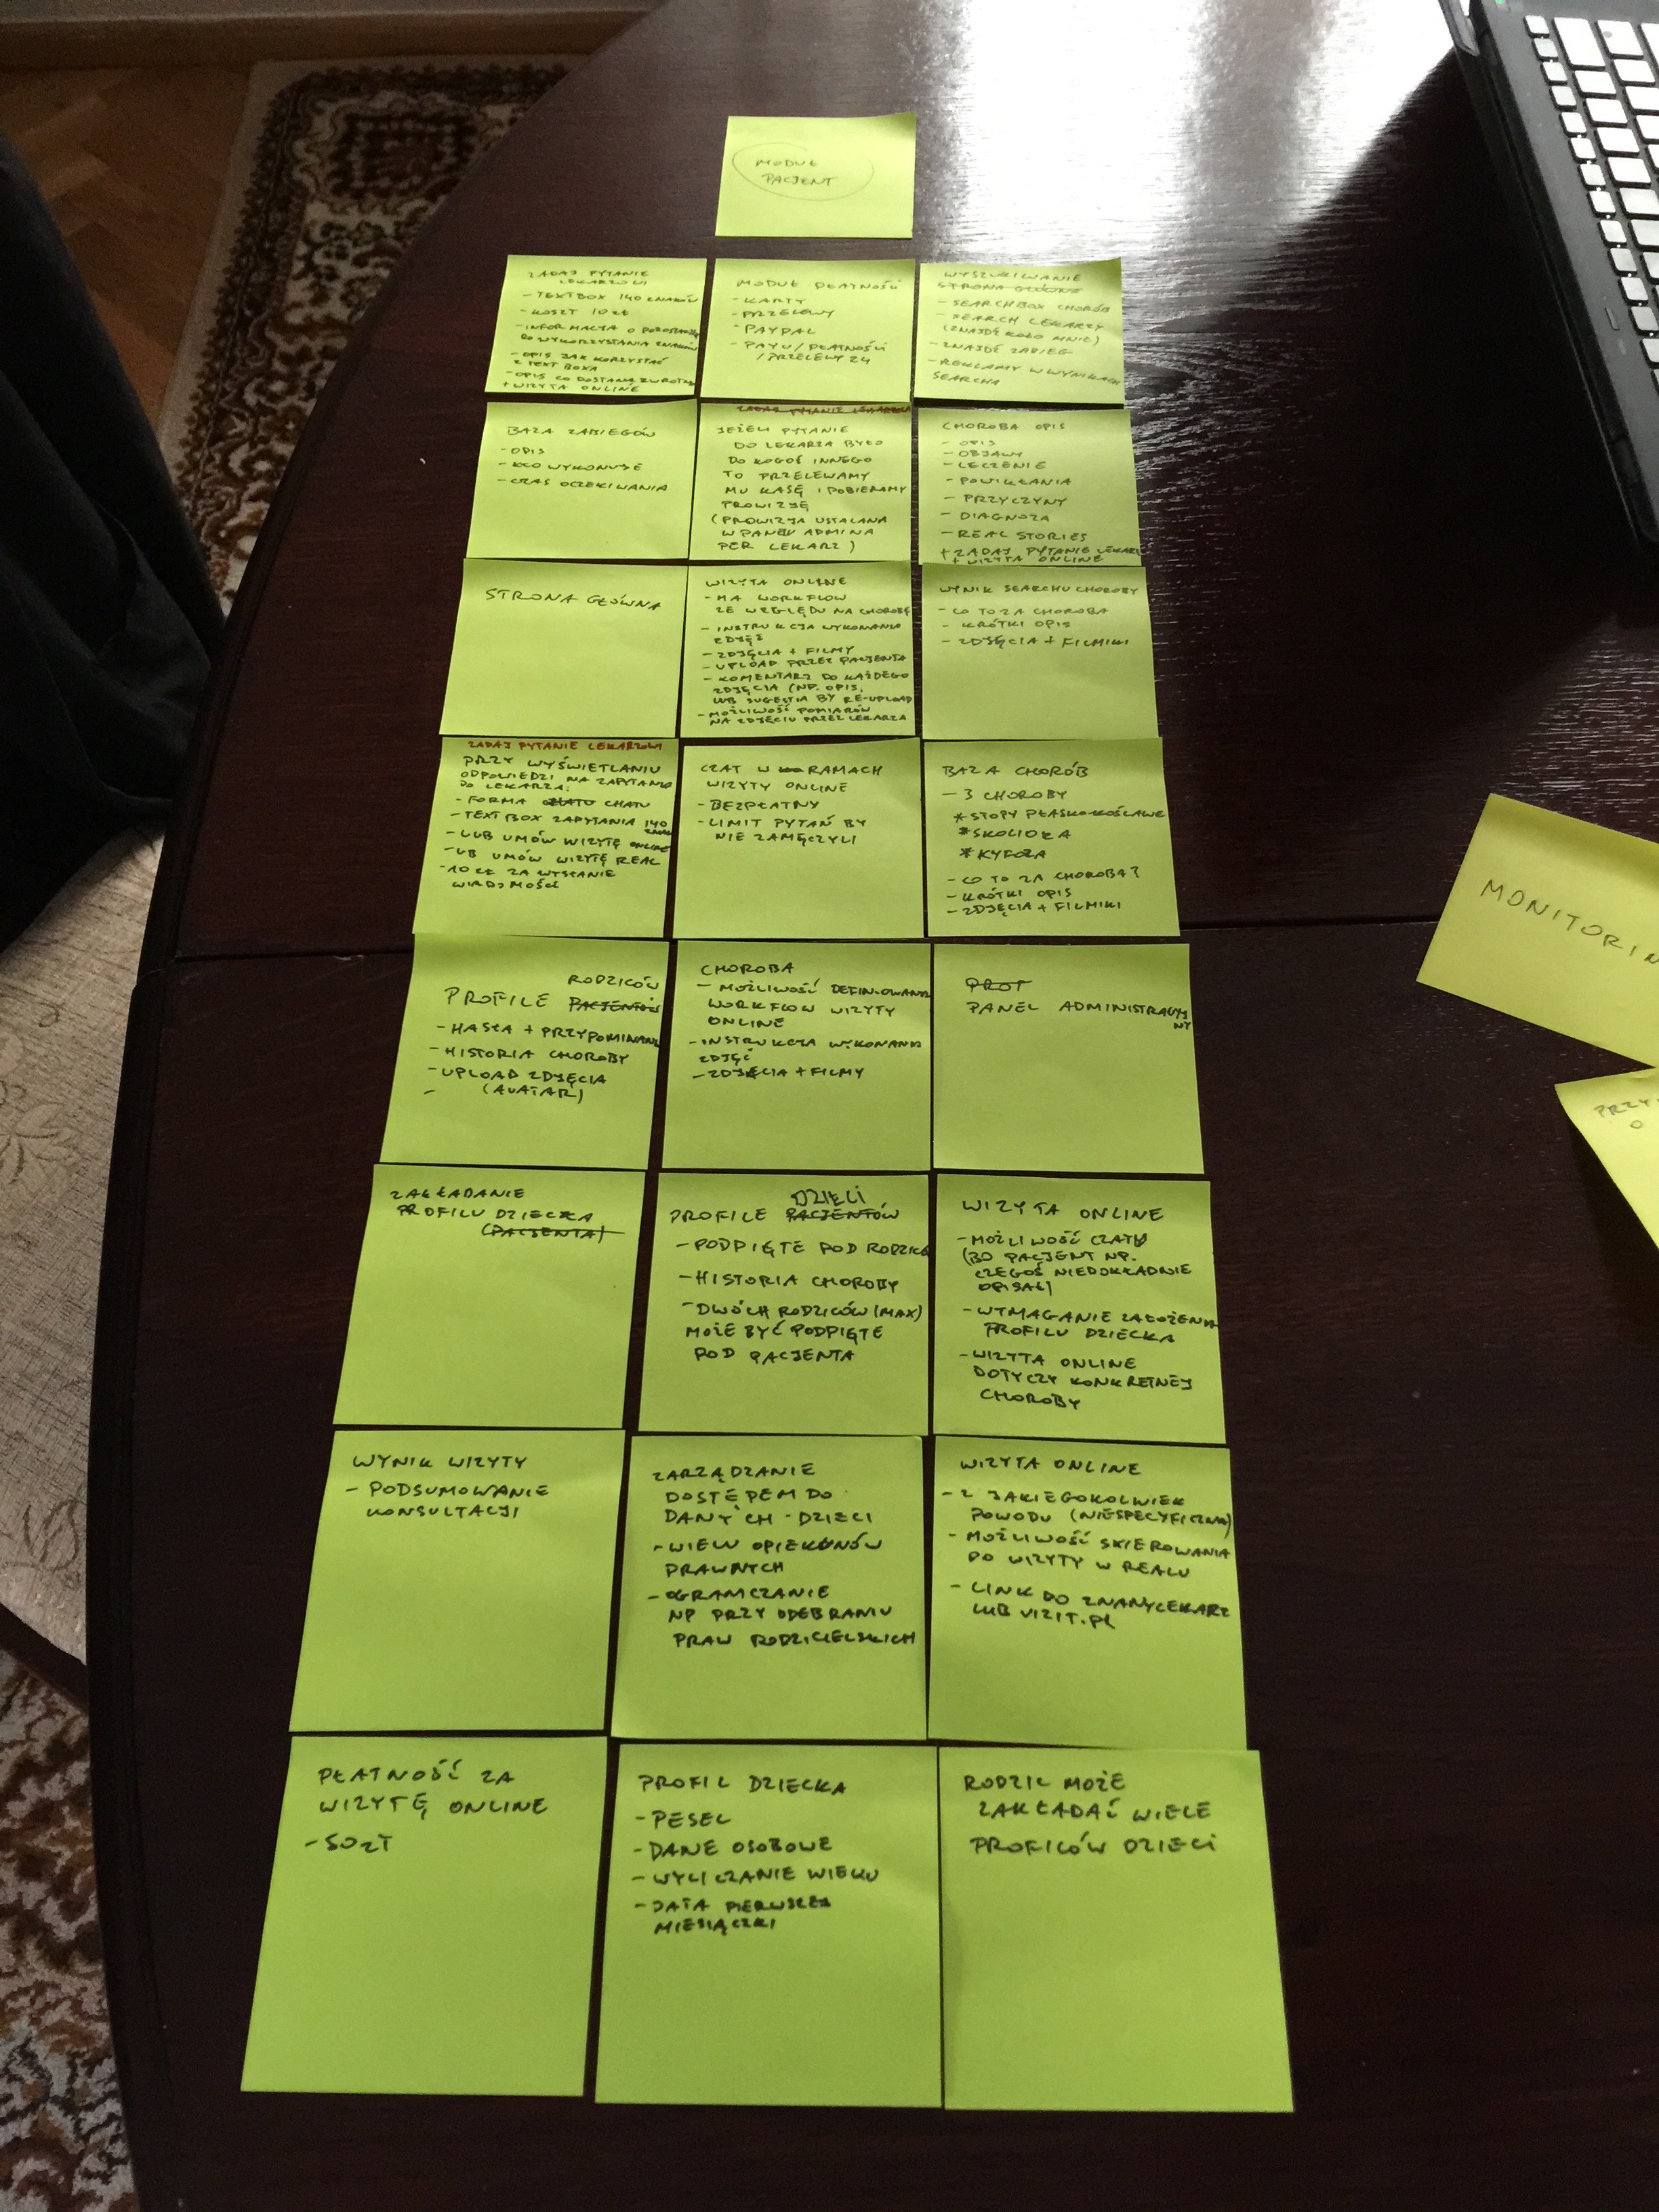 MODUŁ
PACJENT
ZADAJ PYTANIE
LEKARZOWI
- TEXTBOX 140 ZNAKÓW
- KOSZT 10 ZŁ
- INFORMACJA O
DO WYKORZYSTANIA ZNAKÓW
- OPIS JAK KORZYSTAĆ
Z TEXT BOXA
- OPIS CO DOSTANĄ
+ WIZYTA ONLINE
MODUŁ PŁATNOŚCI
- KARTY
- PRZELEWY
- PAYPAL
- PAYU/PŁATNOŚCI
/PRZELEWY 24
WYSZUKIWANIE
STRONA GŁÓWNA
- SEARCHBOX CHORÓB
- SEARCH LEKARZY
(ZNAJDŹ KOŁO MNIE)
- ZNAJDŹ ZABIEG
- REKLAMY W WYNIKACH
SEARCHA
BAZA ZABIEGÓW
- OPIS
- KTO WYKONUJE
- CZAS OCZEKIWANIA
ZADAJ PYTANIE LEKARZOWI
JEŻELI PYTANIE
DO LEKARZA BYŁO
DO KOGOŚ INNEGO
TO PRZELEWAMY
MU KASĘ I POBIERAMY
PROWIZJĘ
(PROWIZJA USTALANA
W PANELU ADMINA
PER LEKARZ)
CHOROBA OPIS
- OPIS
- OBJAWY
- LECZENIE
- POWIKŁANIA
- PRZYCZYNY
- DIAGNOZA
- REAL STORIES
+ ZADAJ PYTANIE LEKARZ
+ WIZYTA ONLINE
STRONA GŁÓWNA
WIZYTA ONLINE
- MA WORKFLOW
ZE WZGLĘDU NA CHOROBĘ
- INSTRUKCJA WYKONANIA
ZDJĘĆ
- ZDJĘCIA + FILMY
- UPLOAD PRZEZ PACJENTA
- KOMENTARZ DO KAŻDEGO
ZDJĘCIA (NP. OPIS,
LUB SUGESTIA BY RE-UPLOAD
- MOŻLIWOŚĆ POMIARÓW
NA ZDJĘCIU PRZEZ LEKARZA
WYNIK SEARCHU CHOROBY
- CO TO ZA CHOROBA
- KRÓTKI OPIS
- ZDJĘCIA + FILMIKI
ZADAJ PYTANIE LEKARZOWI
PRZY WYŚWIETLANIU
ODPOWIEDZI NA ZAPYTANIE
DO LEKARZA:
- FORMA CHATU
- TEXTBOX ZAPYTANIA 140
ZNAK
- LUB UMÓW WIZYTĘ ONLINE
- LUB UMÓW WIZYTĘ REAL
- 10 ZŁ ZA WYSŁANIE
WIADOMOŚCI
CZAT W RAMACH
WIZYTY ONLINE
- BEZPŁATNY
- LIMIT PYTAŃ BY
NIE ZAMĘCZYLI
BAZA CHORÓB
- 3 CHOROBY
* STOPY PŁASKO-KOŚLAWE
* SKOLIOZA
* KYFOZA
- CO TO ZA CHOROBA?
- KRÓTKI OPIS
- ZDJĘCIA + FILMIKI
RODZICÓW
PROFILE PACJENTÓW
- HASŁA + PRZYPOMINANI
- HISTORIA CHOROBY
- UPLOAD ZDJĘCIA
- (AVATAR)
CHOROBA
- MOŻLIWOŚĆ DEFINIOWANIA
WORKFLOW WIZYTY
ONLINE
- INSTRUKCJA WYKONANIA
ZDJĘĆ
- ZDJĘCIA + FILMY
PROF
PANEL ADMINISTRACYJ
NY
ZAKŁADANIE
PROFILU DZIECKA
(PACJENTA)
DZIECI
PROFILE PACJENTÓW
- PODPIĘTE POD RODZICA
- HISTORIA CHOROBY
- DWÓCH RODZICÓW (MAX)
MOŻE BYĆ PODPIĘTE
POD PACJENTA
WIZYTA ONLINE
- MOŻLIWOŚĆ CZATU
(BO PACJENT NP.
CZEGOŚ NIEDOKŁADNIE
OPISAŁ)
- WYMAGANIE ZAŁOŻENIA
PROFILU DZIECKA
- WIZYTA ONLINE
DOTYCZY KONKRETNEJ
CHOROBY
WYNIK WIZYTY
- PODSUMOWANIE
KONSULTACJI
ZARZĄDZANIE
DOSTĘPEM DO
DANYCH DZIECI
- WIELU OPIEKUNÓW
PRAWNYCH
- OGRANICZANIE
NP PRZY ODEBRANIU
PRAW RODZICIELSKICH
WIZYTA ONLINE
- Z JAKIEGOKOLWIEK
POWODU (NIESPECYFICZNA)
- MOŻLIWOŚĆ SKIEROWANIA
DO WIZYTY W REALU
- LINK DO ZNANYLEKARZ
LUB VIZIT.PL
PŁATNOŚĆ ZA
WIZYTĘ ONLINE
- 50 ZŁ
PROFIL DZIECKA
- PESEL
- DANE OSOBOWE
- WYLICZANIE WIEKU
- DATA PIERWSZEJ
MIESIĄCZKI
RODZIC MOŻE
ZAKŁADAĆ WIELE
PROFILÓW DZIECI
MONITORIN
PRZY
O